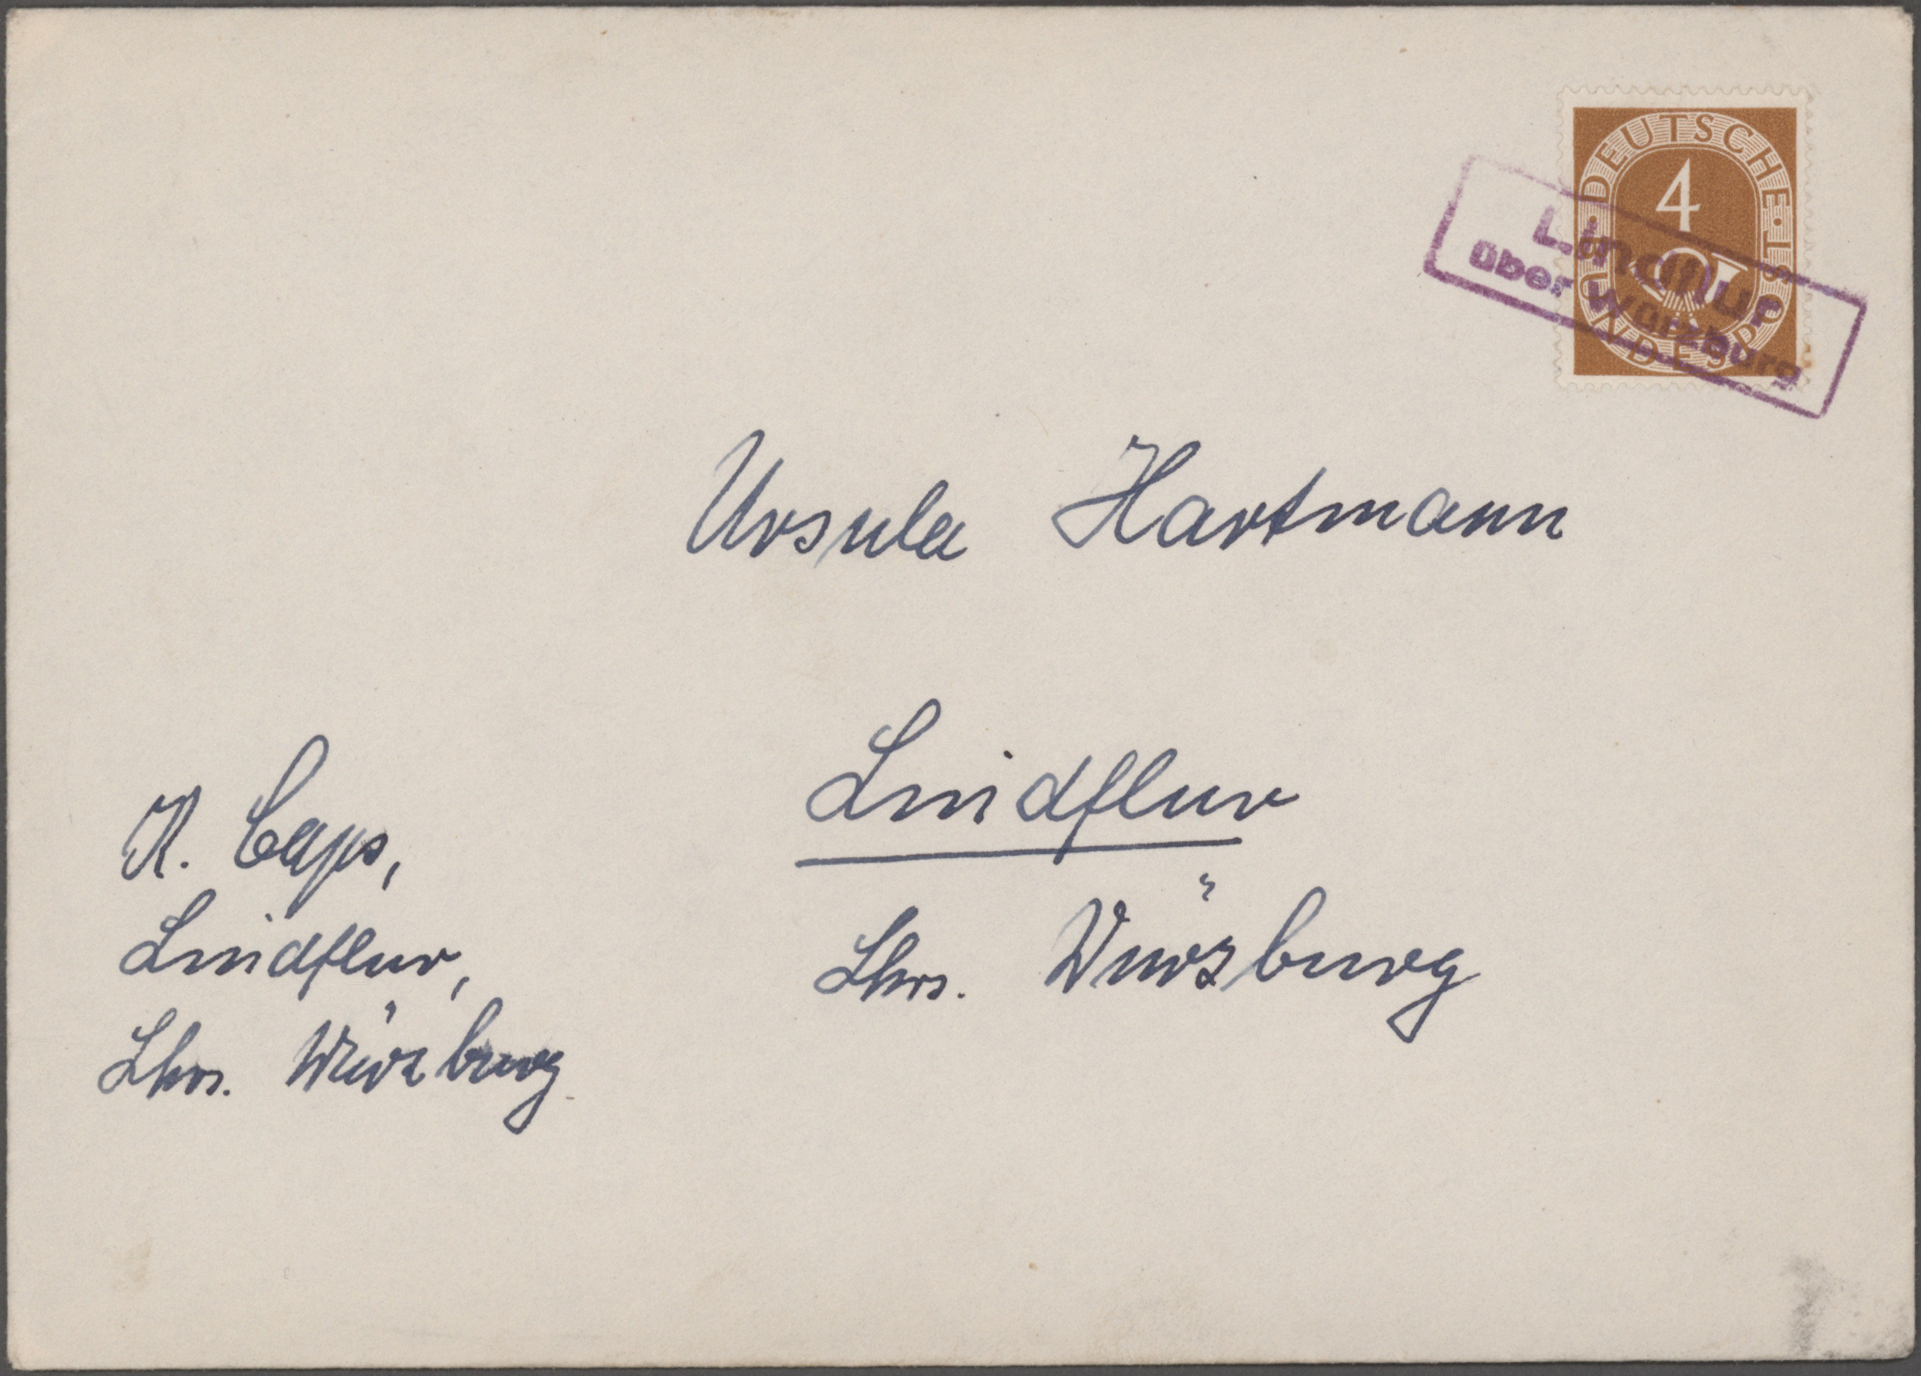 DEUTSCHE · BUNDESPOST ·
4
Lindflur
über Würzburg
Ursula Hartmann
Lindflur
Lkrs. Würzburg
Lindflur,
Lkrs. Würzburg.